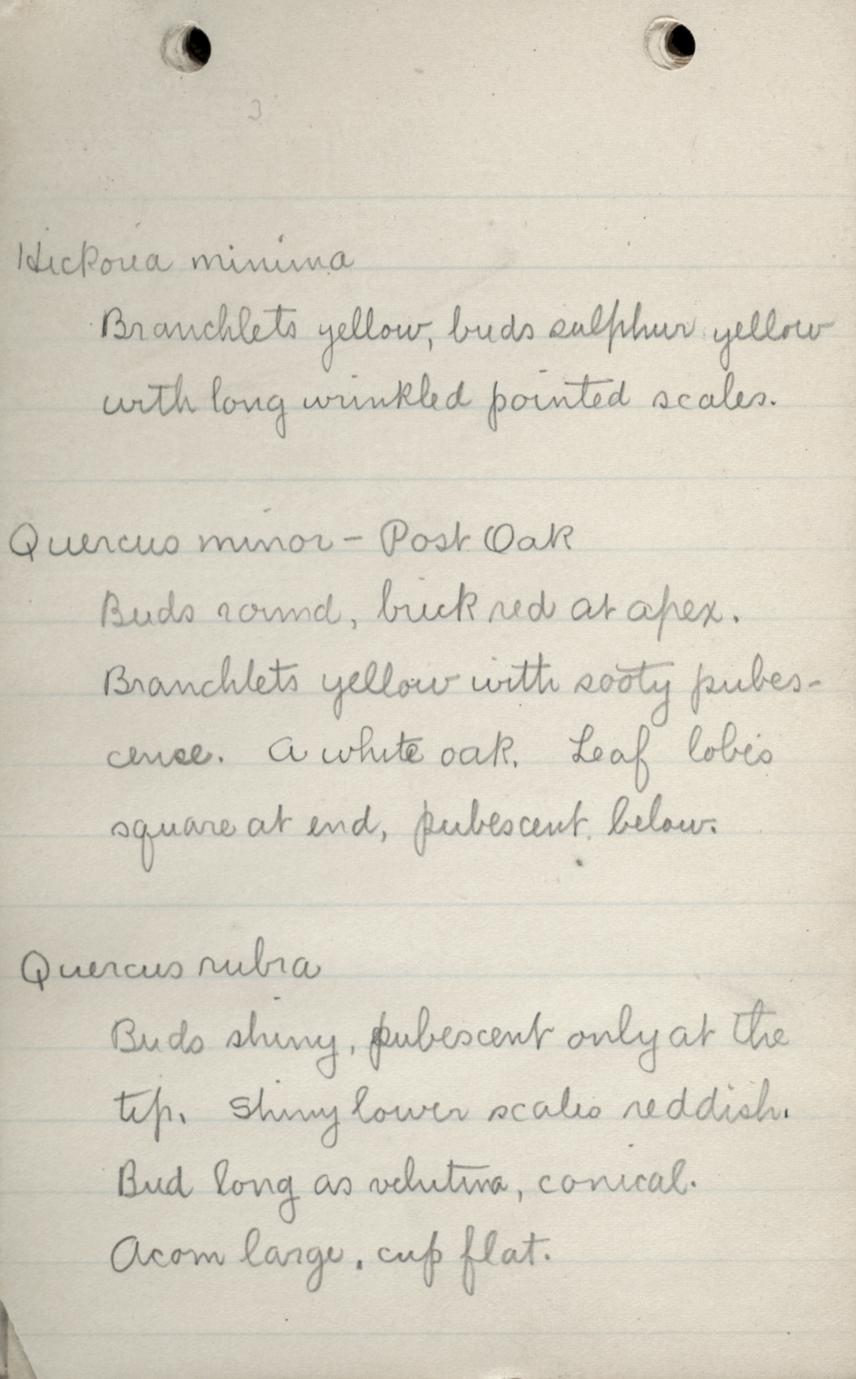 3
Hickoria minima
Branchlets yellow, buds sulphur yellow
with long wrinkled pointed scales.
Quercus minor - Post Oak
Buds round, brick red at apex.
Branchlets yellow with sooty pubes-
cense. A white oak. Leaf lobes
square at end, pubescent below.
Quercus rubra
Buds shiny, pubescent only at the
tip. Shiny lower scales reddish.
Bud long as velutina, conical.
Acorn large, cup flat.